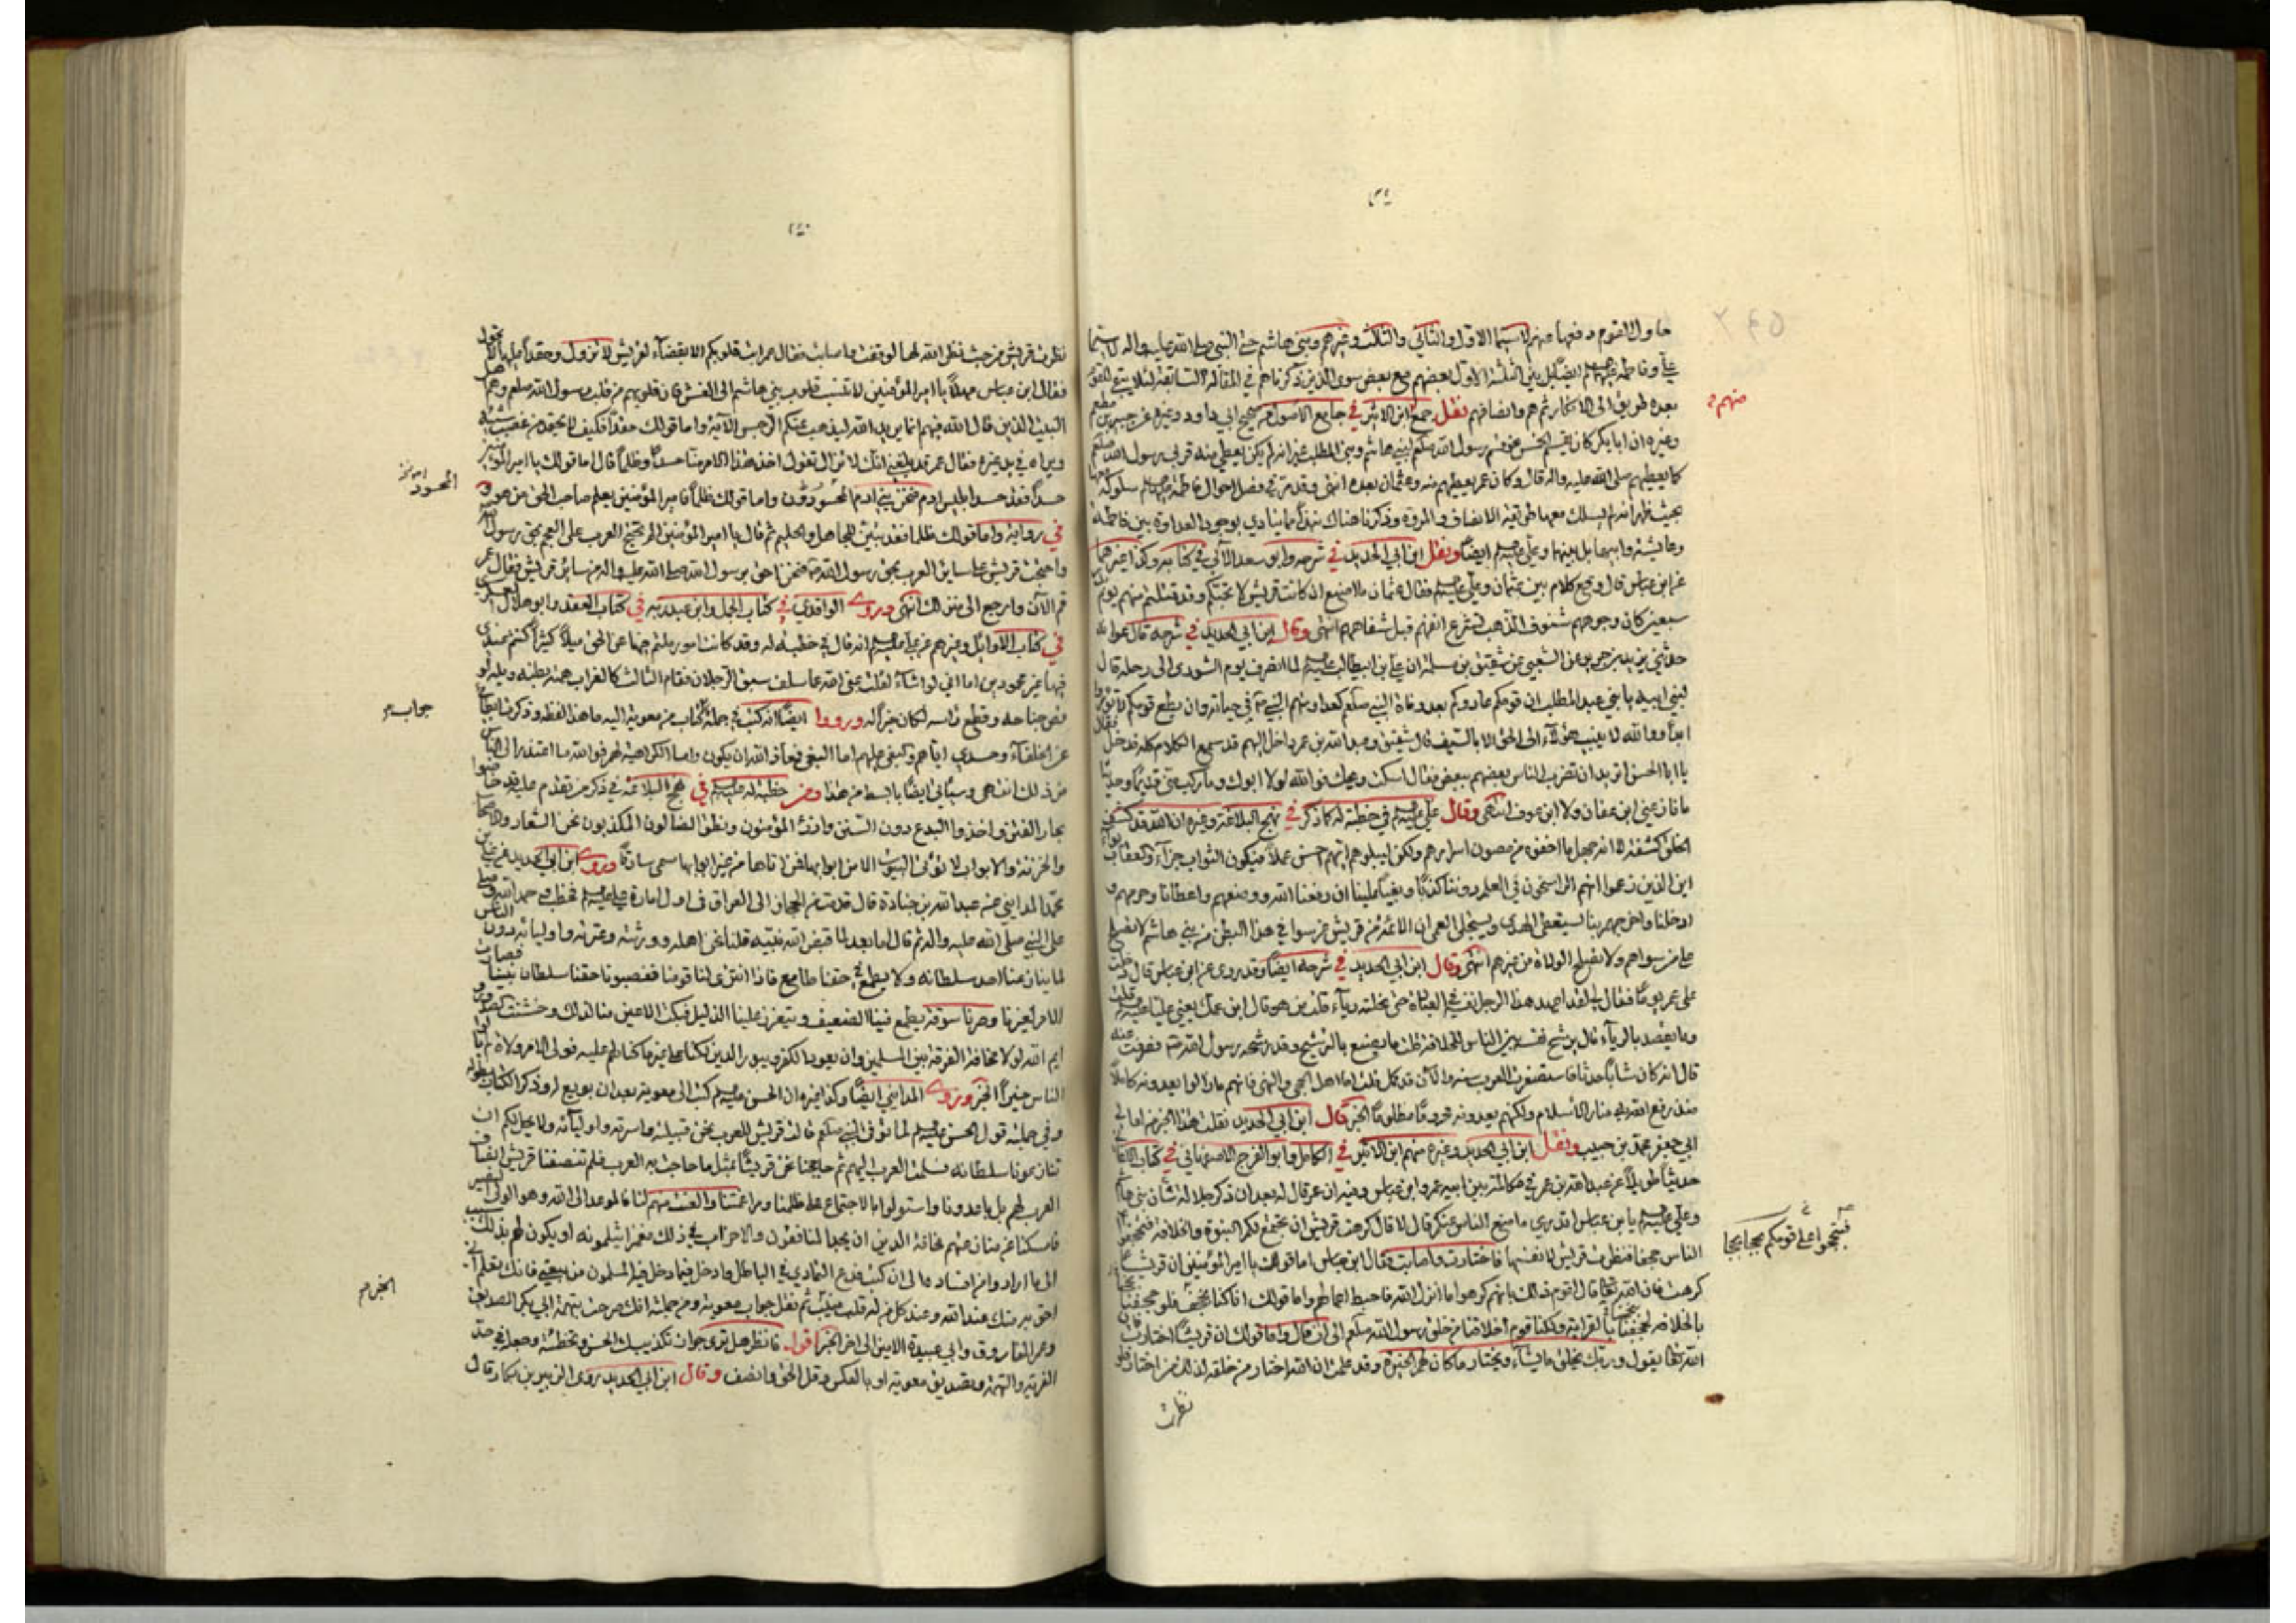 حاول القوم دفعها منهم لاسيما الاول والثاني والثالث وغيرهم وبني هاشم حتى النبي صلى الله عليه واله لاسيما
علي وفاطمة ايضا بل بين الثلثة الاول بعضهم مع بعض سوى الذين ذكرناهم في المقالة السابقة لئلا يبقى
بعده طريق الى الانكار ثم هم وانصافهم نقل جمع ابن الاثير في جامع الاصول صحيح ابي داود وغيره عن جبير بن مطعم
منهم
وغيره ان ابا بكر كان يقسم الخمس نحو قسم رسول الله صلعم لبني هاشم وبني المطلب غير انه لم يكن يعطي منه قربى رسول الله صلعم
كما يعطيهم صلى الله عليه واله قال وكان عمر يعطيهم منه وعثمان بعده انتهى وقد مر في فصل احوال فاطمة سلوكه معها
بحيث ظهر انه لم يسلك معها طريقة الانصاف والمروة وذكرنا هناك نبذا مما ينادي بوجود العداوة بين فاطمة
وعايشة وابيها بل بينها وعلي ايضا ونقل ابن ابي الحديد في شرحه وابو سعد الآبي في كتابه وكذا غيرهما
عن ابن عباس قال وقع كلام بين عثمان وعلي فقال عثمان ما اصنع ان كانت قريش لا تحبكم وقد قتلتم منهم يوم بدر
سبعين كان وجوههم شنوف الذهب تشرع انفهم قبل شفاههم انتهى وقال ابن ابي الحديد في شرحه قال عوانة
حدثني يزيد بن جرير عن الشعبي عن شقيق بن سلمة ان علي بن ابيطالب لما انصرف يوم الشورى الى رحله قال
لبني ابيه يا بني عبد المطلب ان قومكم عادوكم بعد وفاة النبي صلعم كعداوتهم النبي في حياته وان يطع قومكم لا تؤمروا
ابدا ووالله لا ينيب هؤلاء الى الحق الا بالسيف قال شقيق وعبد الله بن عمر داخل اليهم قد سمع الكلام كله فدخل فقال
يا ابا الحسن اتريد ان تضرب الناس بعضهم ببعض فقال اسكت ويحك فوالله لولا ابوك وما ركب مني قديما وحديثا
ما نازعني ابن عفان ولا ابن عوف انتهى وقال علي في خطبة له كما ذكر في نهج البلاغة وغيره ان الله قد كشف
الخلق كشفة لا انه جهل ما اخفوه من مصون اسرارهم ولكن ليبلوهم ايهم احسن عملا فيكون الثواب جزاء والعقاب بواء
اين الذين زعموا انهم الراسخون في العلم دوننا كذبا وبغيا علينا ان رفعنا الله ووضعهم واعطانا وحرمهم و
ادخلنا واخرجهم بنا يستعطى الهدى ويستجلى العمى ان الائمة من قريش غرسوا في هذا البطن من بني هاشم لا تصلح
على من سواهم ولا تصلح الولاة من غيرهم انتهى وقال ابن ابي الحديد في شرحه ايضا وقد روي عن ابن عباس قال دخلت
على عمر يوما فقال لي لقد اجهد هذا الرجل نفسه في العبادة حتى نحلته رياء قلت من هو قال ابن عمك يعني عليا قلت
وما يقصد بالرياء قال يرشح نفسه بين الناس للخلافة قلت ما يصنع بالترشيح وقد رشحه رسول الله فصرفت عنه
قال انه كان شابا حدثا فاستصغرت العرب سنه والآن قد كمل قلت اما اهل الحجى والنهى فانهم ما زالوا يعدونه كاملا
منذ رفع الله منار الاسلام ولكنهم يعدونه محروما مظلوما الخبر قال ابن ابي الحديد نقلت هذا الخبر من امالي
ابي جعفر محمد بن حبيب ونقل ابن ابي الحديد وغيره منهم ابن الاثير في الكامل وابو الفرج الاصبهاني في كتاب
حديثا طويلا عن عبد الله بن عمر في مكالمة بين ابيه عمر وابن عباس وفيه ان عمر قال له بعد ان ذكر جلالة شان بني هاشم
وعلي يا بن عباس اتدري ما منع الناس عنكم قال لا قال كرهت قريش ان تجتمع لكم النبوة والخلافة
فتجحفوا على قومكم
الناس جحفا فنظرت قريش لانفسها فاختارت واصابت وقال ابن عباس اما قولك يا امير المؤمنين ان قريشا
كرهت فان الله تعالى قال لقوم ذلك بانهم كرهوا ما انزل الله فاحبط اعمالهم واما قولك انا كنا نجحف فلو جحفنا
بالخلافة لجحفنا بالقرابة ولكنا قوم اخلاقنا من خلق رسول الله صلعم الى ان قال واما قولك ان قريشا اختارت فان
الله تعالى يقول وربك يخلق ما يشاء ويختار ما كان لهم الخيرة وقد علمت ان الله اختار من خلقه لذلك من اختار فلو
نظرت
نظرت قريش من حيث نظر الله لها لوفقت واصابت فقال عمر ابت قلوبكم الا بغضا لقريش لا يزول وحقدا
فقال ابن عباس مهلا يا امير المؤمنين لا تنسب قلوب بني هاشم الى الغش فان قلوبهم من قلب رسول الله صلعم وهم اهل
البيت الذين قال الله فيهم انما يريد الله ليذهب عنكم الرجس الآية واما قولك حقدا فكيف لا يحقد من غصب شيئه
ويراه في يد غيره فقال عمر قد بلغني انك لا تزال تقول اخذ هذا الامر منا حسدا وظلما قال اما قولك يا امير المؤمنين
حسدا فقد حسد ابليس ادم فنحن بني ادم المحسودون واما قولك ظلما فامير المؤمنين يعلم صاحب الحق من هو و
المحسود
في رواية واما قولك ظلما فقد تبين للجاهل والحليم ثم قال يا امير المؤمنين الم تحتج العرب على العجم بحق رسول الله
واحتجت قريش على ساير العرب بحق رسول الله فنحن احق برسول الله صلى الله عليه واله من ساير قريش فقال عمر
قم الآن وارجع الى منزلك انتهى وروى الواقدي في كتاب الجمل وابن عبد ربه في كتاب العقد وابو هلال العسكري
في كتاب الاوايل وغيرهم عن علي انه قال في خطبة له وقد كانت امور ملتم فيها عن الحق ميلا كثيرا كنتم عندي
فيها غير محمودين اما اني لو اشاء لقلت عفى الله عما سلف سبق الرجلان فقام الثالث كالغراب همته بطنه ويله لو
قص جناحه وقطع راسه لكان خيرا له ورووا ايضا انه كتب في جملة كتاب من معوية اليه ما هذا لفظه وذكرت
جواب
عن الخلفاء وحسدي اياهم وبغيي عليهم اما البغي فمعاذ الله ان يكون واما الكراهية لهم فوالله ما اعتذر الى الناس
من ذلك انتهى وسياتي ايضا بابسط من هذا ومن خطبة له في نهج البلاغة في ذكر من تقدم عليه قد خاضوا
بحار الفتن واخذوا البدع دون السنن وارز المؤمنون ونطق الضالون المكذبون نحن الشعار والاصحاب
والخزنة والابواب لا تؤتى البيوت الا من ابوابها فمن اتاها من غير ابوابها سمي سارقا وروى ابن ابي الحديد عن علي بن
محمد المدايني عن عبد الله بن جنادة قال قدمت من الحجاز الى العراق في اول امارة علي فخطب فحمد الله وصلى
على النبي صلى الله عليه واله ثم قال اما بعد لما قبض الله نبيه قلنا نحن اهله وورثته وعترته واولياؤه دون الناس
لا ينازعنا احد سلطانه ولا يطمع في حقنا طامع فاذا انتزى لنا قومنا فغصبونا حقنا سلطان نبينا فصارت
الامرة لغيرنا وصرنا سوقة يطمع فينا الضعيف ويتعزز علينا الذليل فبكت الاعين منا لذلك وخشنت الصدور و
ايم الله لولا مخافة الفرقة بين المسلمين وان يعود الكفر ويبور الدين لكنا على غير ما كنا لهم عليه فولى الامر ولاة لم يألوا
الناس خيرا الخبر وروى المدايني ايضا وكذا غيره ان الحسن كتب الى معوية بعد ان بويع له وذكر الكتاب بطوله
وفي جملته قول الحسن لما توفي النبي صلعم قالت قريش للعرب نحن قبيلته واسرته واولياؤه ولا يحل لكم ان
تنازعونا سلطانه فسلمت العرب اليهم ثم حاججنا نحن قريشا بمثل ما حاجت به العرب فلم تنصفنا قريش انصاف
العرب لهم بل باعدونا واستولوا بالاجتماع على ظلمنا ومراغمتنا والعنت منهم لنا فالموعد الى الله وهو الولي النصير
فامسكنا عن منازعتهم مخافة على الدين ان يجد المنافقون والاحزاب في ذلك مغمزا يثلمونه او يكون لهم بذلك سبب
الى ما ارادوا من افساده الى ان كتب فدع التمادي في الباطل وادخل فيما دخل فيه المسلمون من بيعتي فانك تعلم اني
احق به منك عند الله وعند كل من له قلب منيب ثم نقل جواب معوية ومن جملته انك صرحت بتهمة ابي بكر الصديق
الخبر
وعمر الفاروق وابي عبيدة الامين الى اخر الخبر اقول فانظر هل ترى جواز تكذيب الحسن وتخطئته وجعله في حد
الفرية والتهمة وتصديق معوية او بالعكس وقل الحق وانصف وقال ابن ابي الحديد روى الزبير بن بكار قال